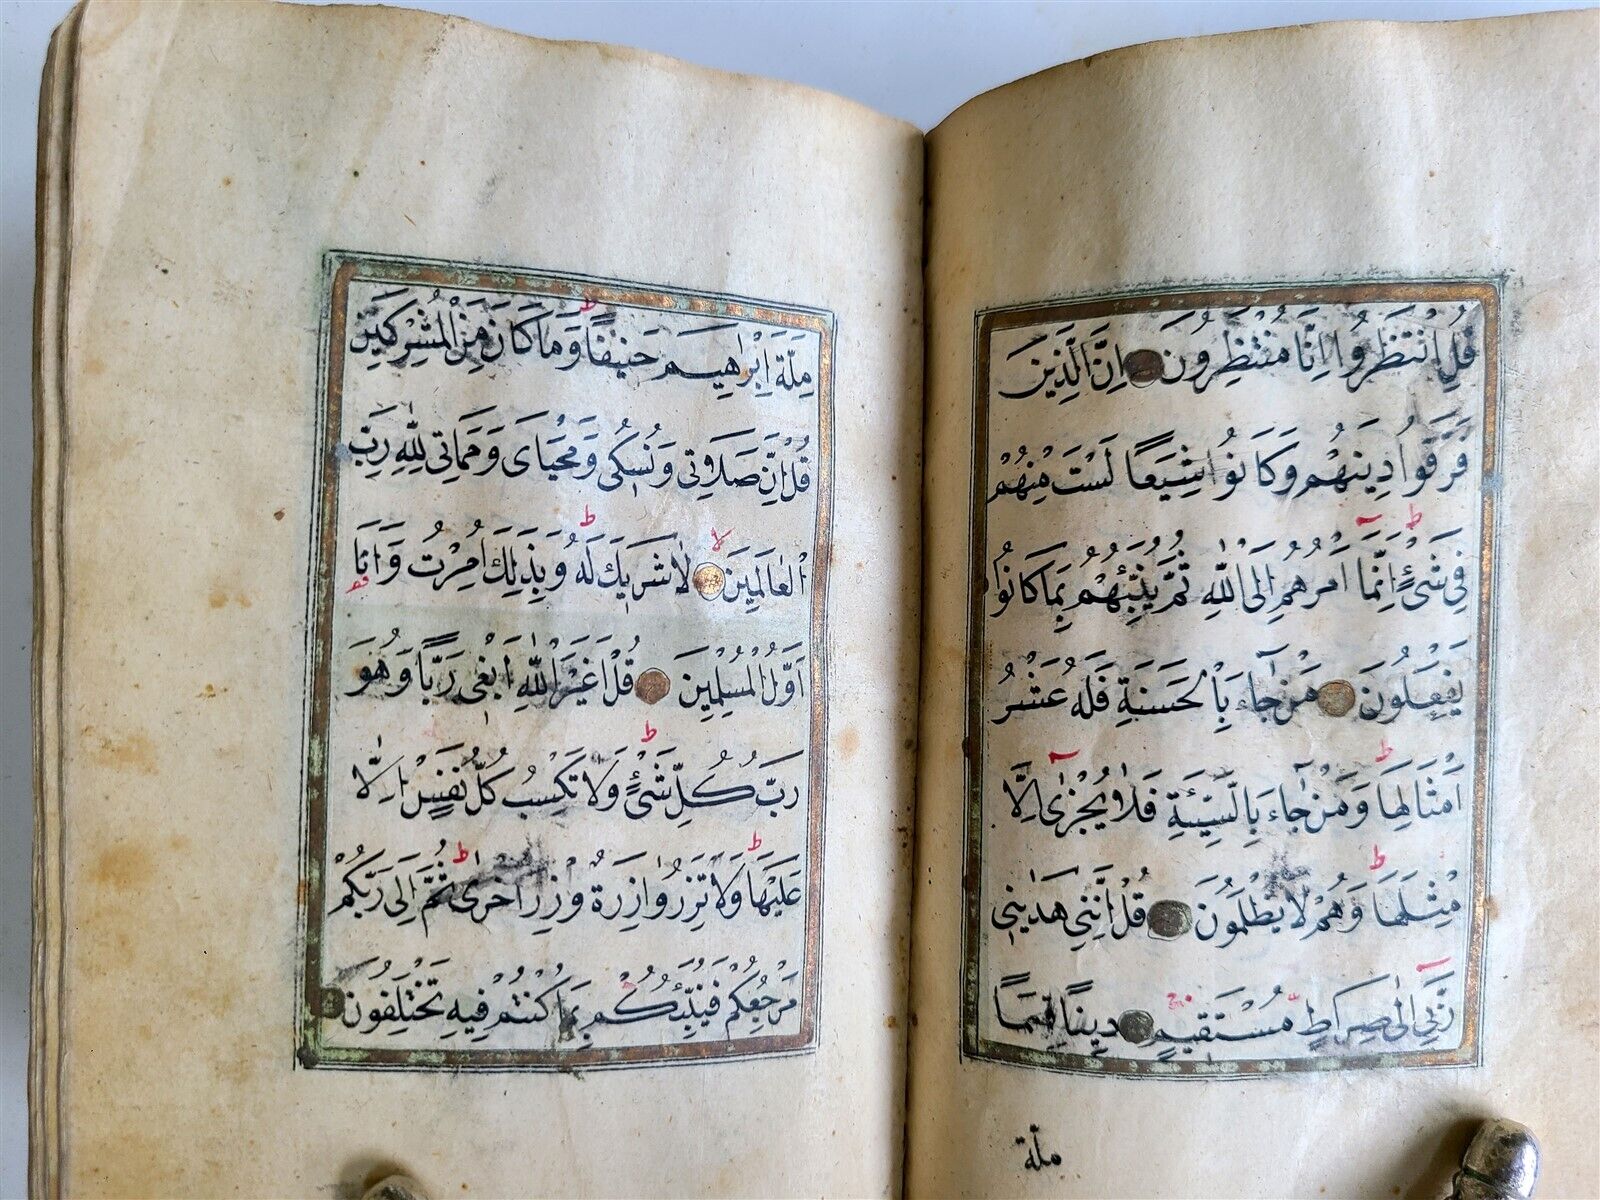 قُلِ انْتَظِرُوا اِنَّا مُنْتَظِرُونَ اِنَّ الَّذِينَ
فَرَّقُوا دِينَهُمْ وَكَانُوا شِيَعًا لَسْتَ مِنْهُمْ
فِي شَيْءٍ اِنَّمَا اَمْرُهُمْ اِلَى اللّٰهِ ثُمَّ يُنَبِّئُهُمْ بِمَا كَانُوا
يَفْعَلُونَ مَنْ جَاءَ بِالْحَسَنَةِ فَلَهُ عَشْرُ
اَمْثَالِهَا وَمَنْ جَاءَ بِالسَّيِّئَةِ فَلَا يُجْزٰى اِلَّا
مِثْلَهَا وَهُمْ لَا يُظْلَمُونَ قُلْ اِنَّنِي هَدٰينِي
رَبِّي اِلٰى صِرَاطٍ مُسْتَقِيمٍ دِينًا قِيَمًا
ملّة
مِلَّةَ اِبْرٰهِيمَ حَنِيفًا وَمَا كَانَ مِنَ الْمُشْرِكِينَ
قُلْ اِنَّ صَلَاتِي وَنُسُكِي وَمَحْيَايَ وَمَمَاتِي لِلّٰهِ رَبِّ
الْعَالَمِينَ لَا شَرِيكَ لَهُ وَبِذٰلِكَ اُمِرْتُ وَاَنَا
اَوَّلُ الْمُسْلِمِينَ قُلْ اَغَيْرَ اللّٰهِ اَبْغِي رَبًّا وَهُوَ
رَبُّ كُلِّ شَيْءٍ وَلَا تَكْسِبُ كُلُّ نَفْسٍ اِلَّا
عَلَيْهَا وَلَا تَزِرُ وَازِرَةٌ وِزْرَ اُخْرٰى ثُمَّ اِلٰى رَبِّكُمْ
مَرْجِعُكُمْ فَيُنَبِّئُكُمْ بِمَا كُنْتُمْ فِيهِ تَخْتَلِفُونَ